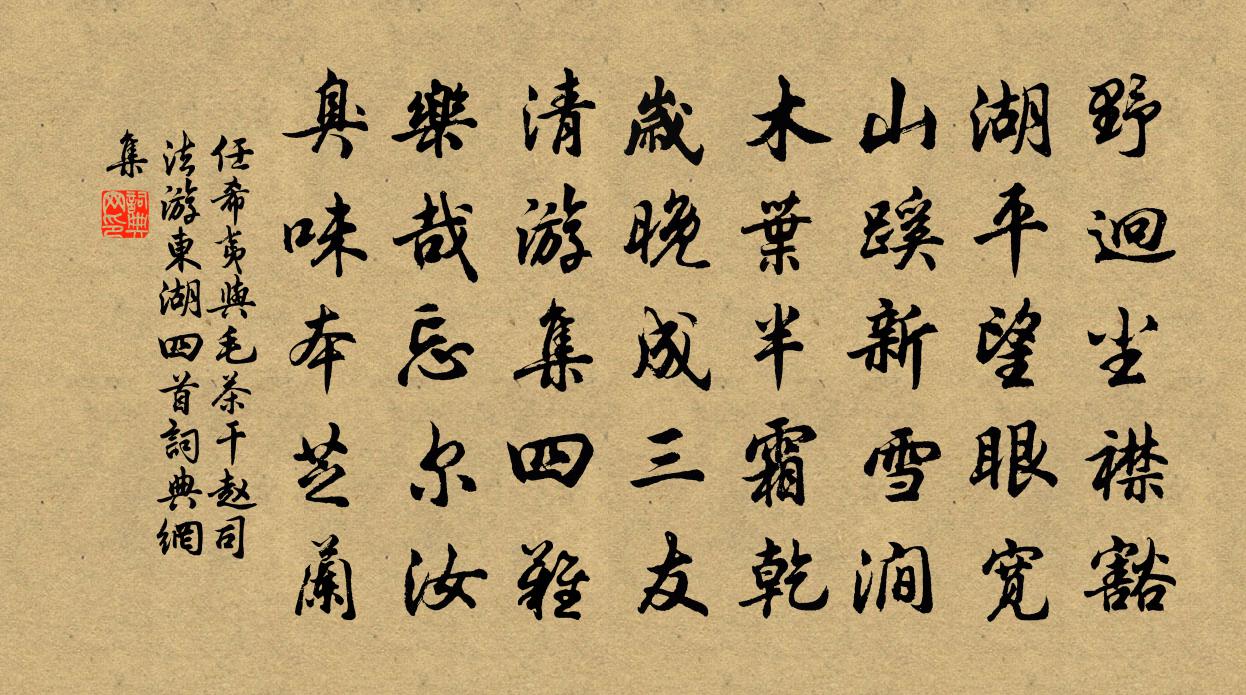 野迥尘襟豁
湖平望眼寬
山蹊新雪澗
木葉半霜乾
歲晚成三友
清游集四難
樂哉忘尔汝
臭味本芝蘭
任希夷與毛茶干赵司
法游東湖四首詞典網
集
詞典
网印